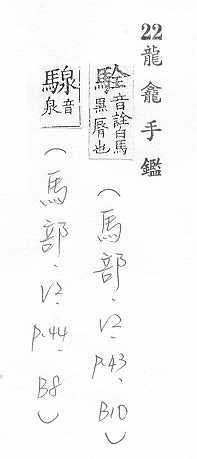 22 龍龕手鑑
駩 音詮白馬黒脣也
（馬部、V2、P.43、B10）
騡 音泉
（馬部、V2、P.44、B8）